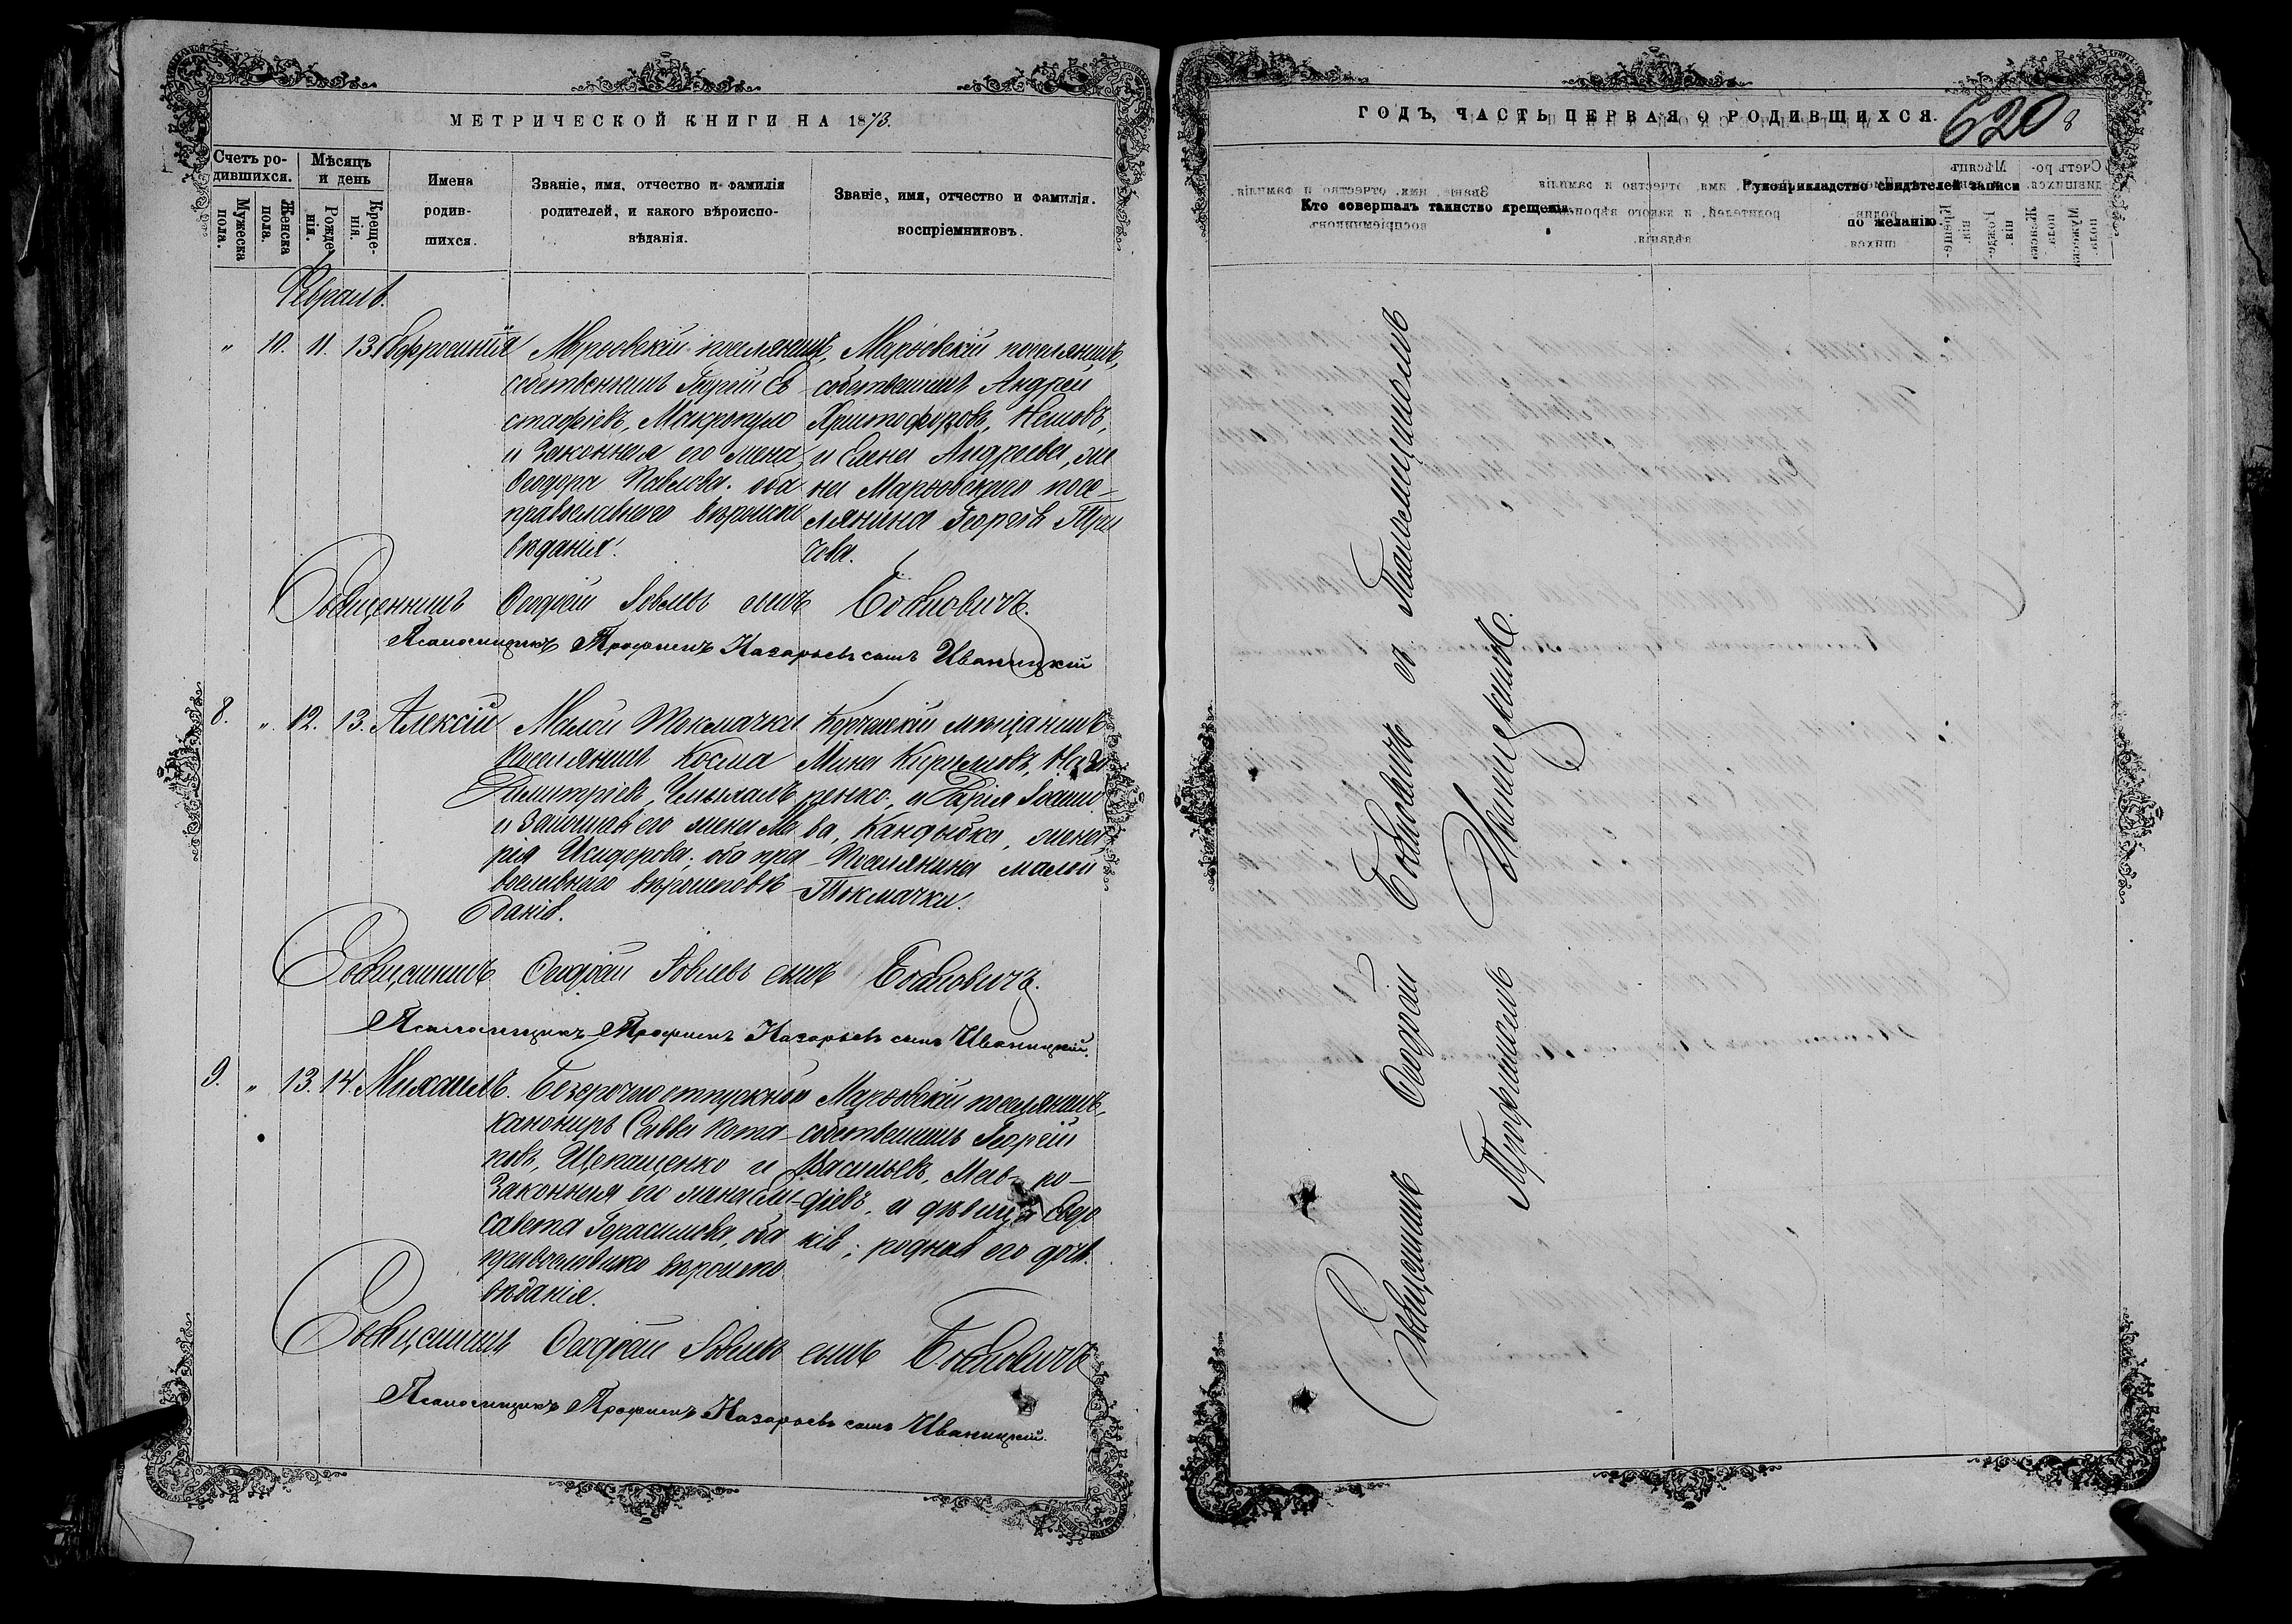 МЕТРИЧЕСКОЙ КНИГИ НА 1873.
Счетъ ро-
дившихся.
Мужеска
пола.
Женска
пола.
Мѣсяцъ
и день
Рожде-
нія.
Креще-
нія.
Имена
родив-
шихся.
Званіе, имя, отчество и фамилія
родителей, и какого вѣроиспо-
вѣданія.
Званіе, имя, отчество и фамилія.
воспріемниковъ.
Февраль.
" 10. 11. 13.
поселянинъ,
собственникъ Георгій Ев-
стафіевъ, Макропуло
и Законная его жена
Ѳеодора Павлова. оба
православнаго вѣроиспо
вѣданія.
поселянинъ,
собственникъ Андрей
Христофоровъ,
и Елена Андреева, же
на Марьевскаго посе-
лянина Георгія
Священникъ Ѳеодоръ Іовлевъ сынъ
Псаломщикъ Трофимъ Назарьевъ сынъ Иваницкій
8. " 12. 13. Алексій
Малой Токмачки
поселянинъ Косма
Димитріевъ,
и Законная его жена Ма
рія Исидорова. оба пра-
вославнаго вѣроисповѣ
данія.
мѣщанинъ
Мина Кириловъ, Наза
ренко, и Дарія Іоанно
ва, жена
Поселянина малой
Токмачки.
Священникъ Ѳеодоръ Іовлевъ сынъ
Псаломщикъ Трофимъ Назарьевъ сынъ Иваницкій.
9. " 13. 14. Михаилъ.
Безсрочноотпускной
канониръ Савва Пота-
повъ, и
Законная его жена Ели-
савета Герасимова, оба
православнаго вѣроиспо
вѣданія.
Марьевскій поселянинъ,
собственникъ Георгій
Васильевъ,
и дѣвица Евдо
кія; родная его дочь.
Священникъ Ѳеодоръ Іовлевъ сынъ
Псаломщикъ Трофимъ Назарьевъ сынъ Иваницкій.
ГОДЪ, ЧАСТЬ ПЕРВАЯ О РОДИВШИХСЯ.
620
8
Кто совершалъ таинство крещенія.
Рукоприкладство свидѣтелей записи
по желанію.
Священникъ Ѳеодоръ съ Псаломщикомъ
Трофимомъ Иваницкимъ.